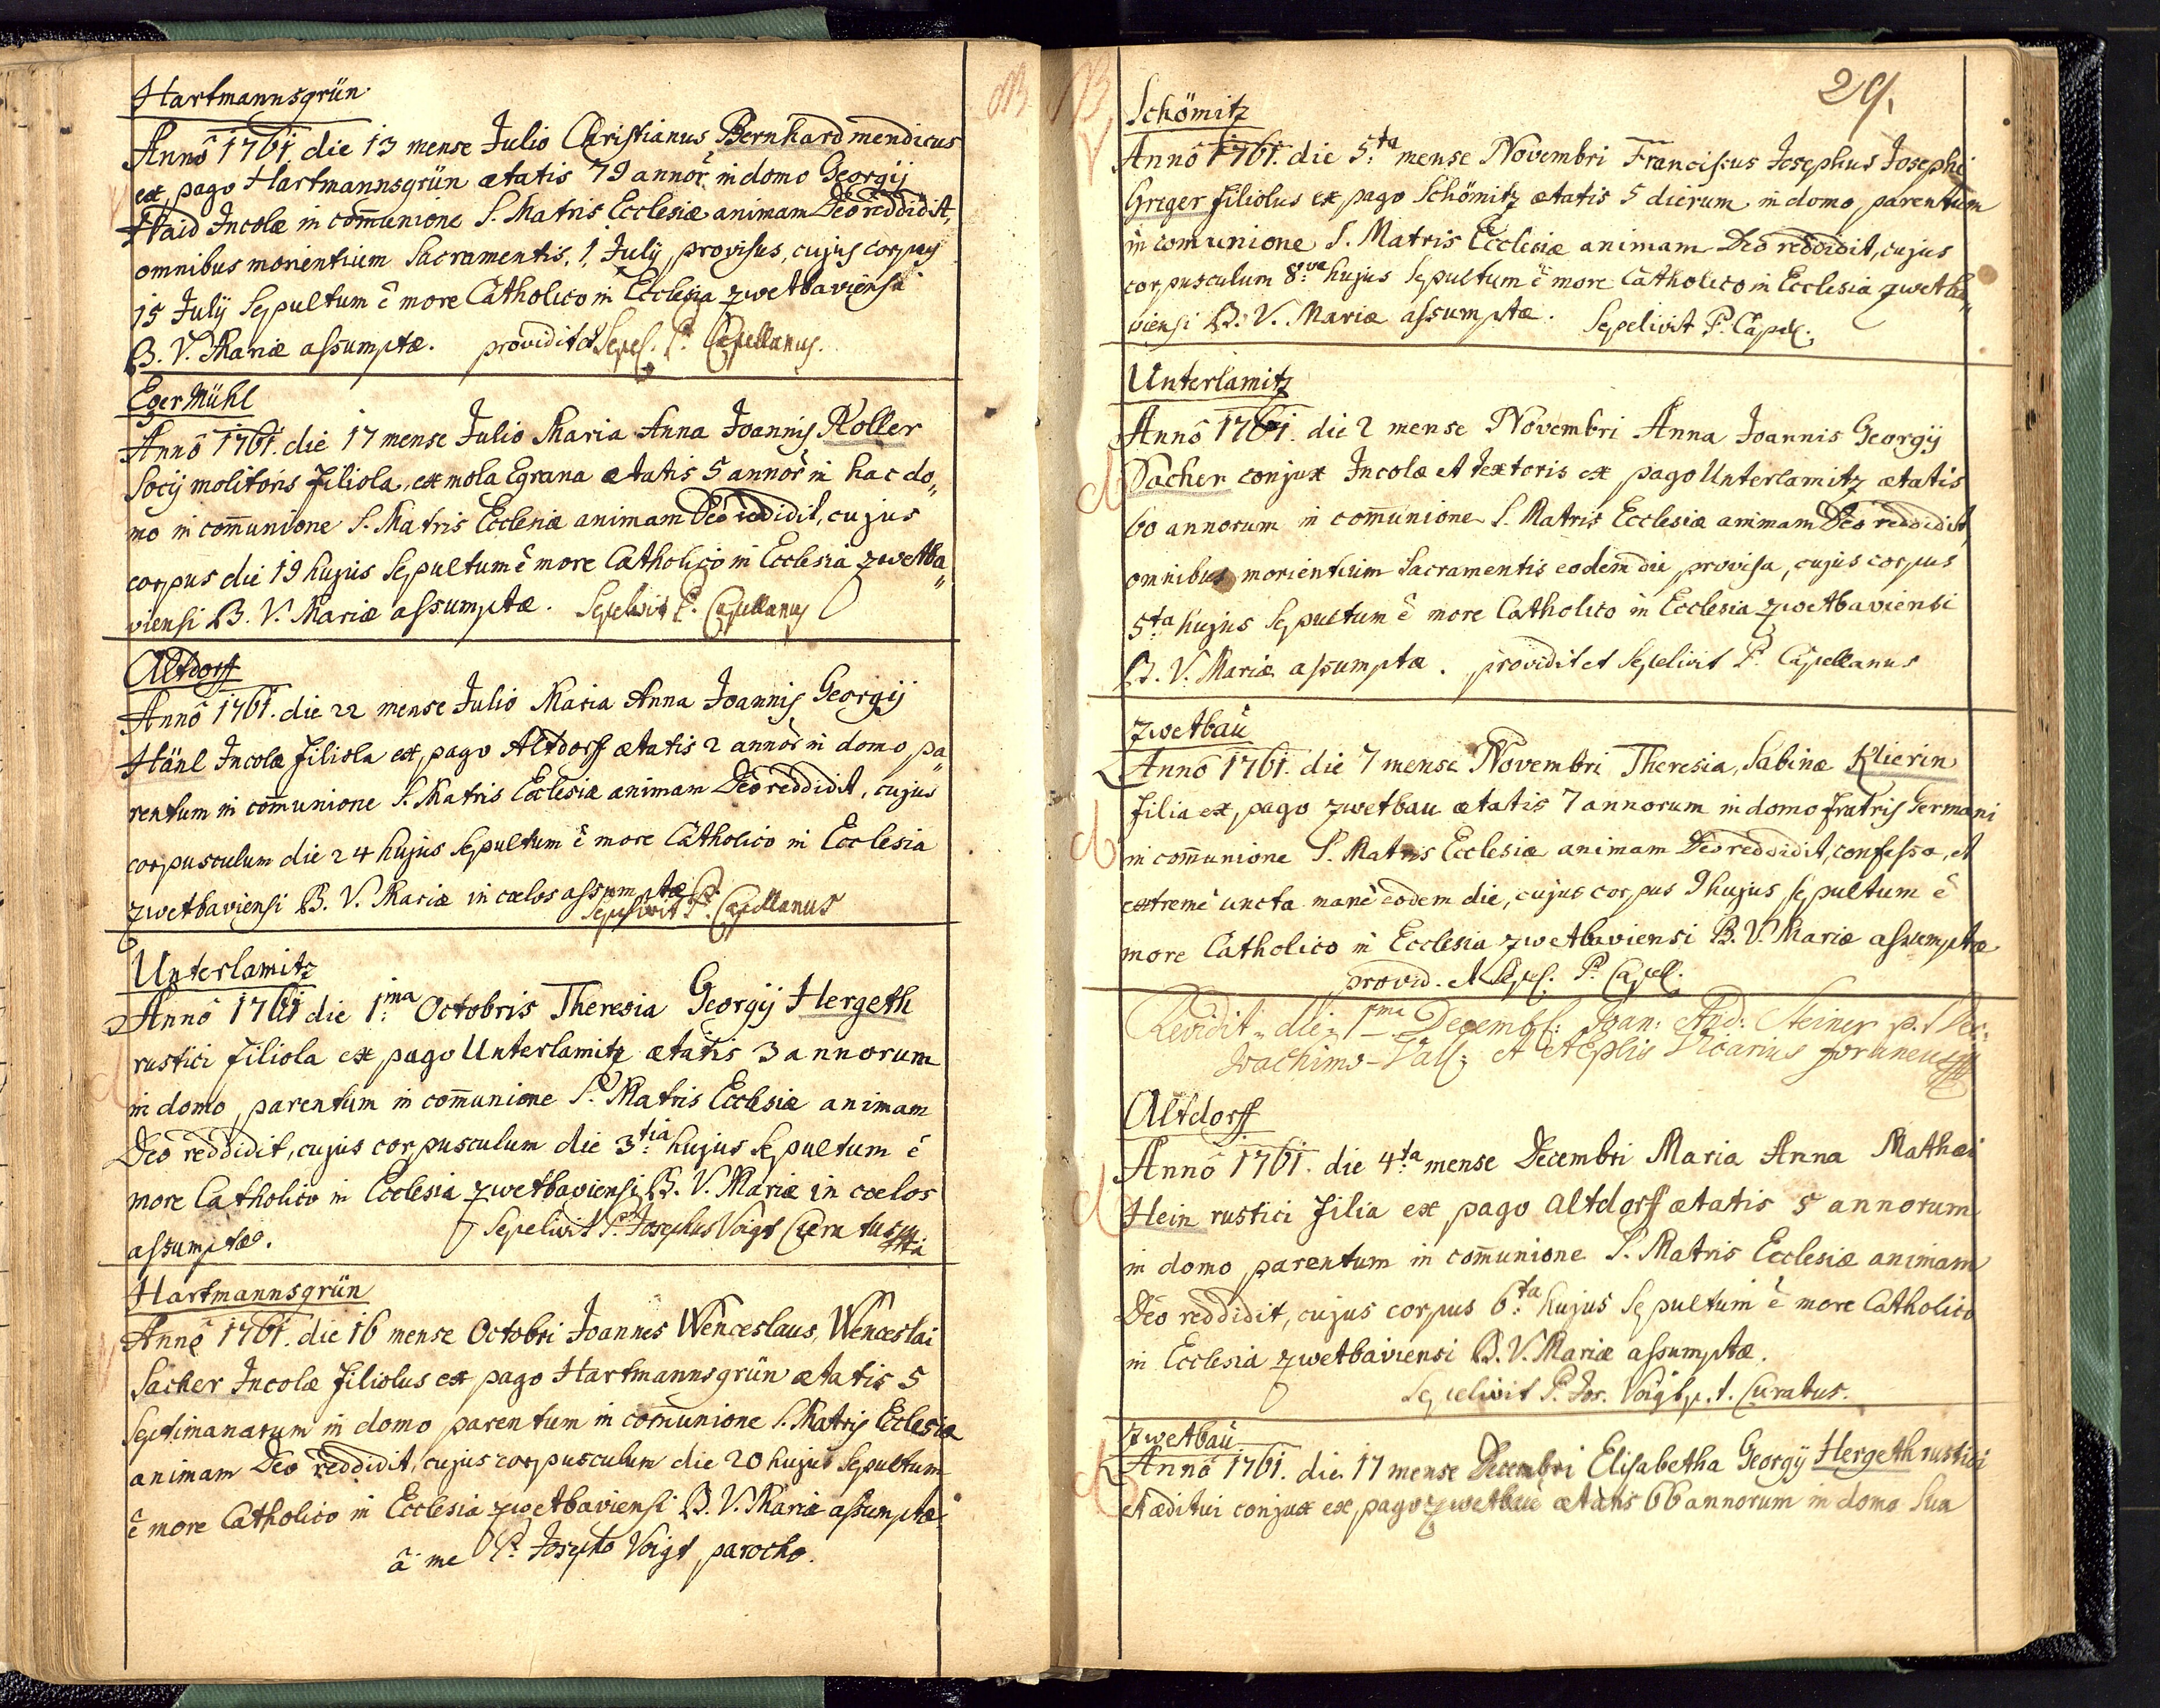 Hartmannsgrün
Annô 1761. die 13 mense Julio Christianus Bernhard mendicus
ex pago Hartmannsgrün ætatis 79 annor̃ in domo Georgij
Haid Incolæ in com̄unione S. Matris Ecclesiæ animam Deo reddidit,
omnibus morientium Sacramentis, 1. July provisus, cujus corpus
15 July Sepultum ê more Catholico in Ecclesia zwetbaviensi
B. V. Mariæ assumptæ. providit et Sepel. P. Capellanus.
Eger Mühl
Annô 1761. die 17 mense Julio Maria Anna Joannis Koller
Socij molitoris filiola, ex mola Egrana ætatis 5 annor̃ in hac do„
mo in com̄unione S. Matris Ecclesiæ animam Deo reddidit, cujus
corpus die 19 hujus Sepultum ê more Catholico in Ecclesia zwetba„
viensi B. V. Mariæ assumptæ. Sepelivit P. Capellanus
Altdorff
Annô 1761. die 22 mense Julio Maria Anna Joannis Georgij
Hänl Incolæ filiola ex pago Altdorff ætatis 2 annor̃ in domo pa„
rentum in com̄unione S. Matris Ecclesiæ animam Deo reddidit, cujus
corpusculum die 24 hujus Sepultum ê more Catholico in Ecclesia
zwetbaviensi B. V. Mariæ in cœlos assumptæ
Sepelivit P. Capellanus
Unterlamitz
Annô 1761 die 1.ma Octobris Theresia Georgij Hergeth
rustici filiola ex pago Unterlamitz ætatis 3 annorum
in domo parentum in com̄unione S. Matris Ecclesiæ animam
Deo reddidit, cujus corpusculum die 3.tia hujus Sepultum ê
more Catholico in Ecclesia zwetbaviensi B. V. Mariæ in cœlos
assumptæ. Sepelivit P. Josephus Voigt Curatus
Hartmannsgrün
Annô 1761. die 16 mense Octobri Joannes Wenceslaus, Wenceslai
Sacher Incolæ filiolus ex pago Hartmannsgrün ætatis 5
Septimanarum in domo parentum in com̄unione S. Matris Ecclesiæ
animam Deo reddidit, cujus corpusculum die 20 hujus Sepultum
ê more Catholico in Ecclesia zwetbaviensi B. V. Mariæ assumptæ.
â me P. Josepho Voigt parocho.
29.
Schömitz
Annô 1761. die 5.ta mense Novembri Franciscus Josephus Josephi
Greger filiolus ex pago Schömitz ætatis 5 dierum in domo parentum
in comunione S. Matris Ecclesiæ animam Deo reddidit, cujus
corpusculum 8.va hujus Sepultum ê more Catholico in Ecclesia zwetba„
viensi B. V. Mariæ assumptæ. Sepelivit P. Capel.
Unterlamitz
Annô 1761. die 2 mense Novembri Anna Joannis Georgij
Sacher conjux Incolæ et textoris ex pago Unterlamitz ætatis
60 annorum in com̄unione S. Matris Ecclesiæ animam Deo reddidit,
omnibus morientium Sacramentis eodem die provisa, cujus corpus
5.ta hujus Sepultum ê more Catholico in Ecclesia zwetbaviensi
B. V. Mariæ assumptæ. providit et Sepelivit P. Capellanus
Zwetbau
Annô 1761. die 7 mense Novembri Theresia, Sabinæ Klierin
filia ex pago zwetbau ætatis 7 annorum in domo fratris Germani
in com̄unione S. Matris Ecclesiæ animam Deo reddidit, confessa, et
extremè uncta manè eodem die, cujus corpus 9 hujus sepultum ê
more Catholico in Ecclesia zwetbaviensi B. V. Mariæ assumptæ
provid. et Sepel. P. Capel.
Revidit die 1.ma Decemb: Joan: And: Steiner p.t. Dec:
Joachimo-Vall: et AEplis Vicarius foraneus
Altdorff
Annô 1761. die 4.ta mense Decembri Maria Anna Mathæi
Hein rustici filia ex pago Altdorff ætatis 5 annorum
in domo parentum in com̄unione S. Matris Ecclesiæ animam
Deo reddidit, cujus corpus 6.ta hujus Sepultum ê more Catholico
in Ecclesia zwetbaviensi B. V. Mariæ assumptæ.
Sepelivit P. Jos. Voigt p.t. Curatus.
Zwetbau
Annô 1761. die 17 mense Decembri Elisabetha Georgij Hergeth rustici
et æditui conjux ex pago zwetbau ætatis 66 annorum in domo Sua